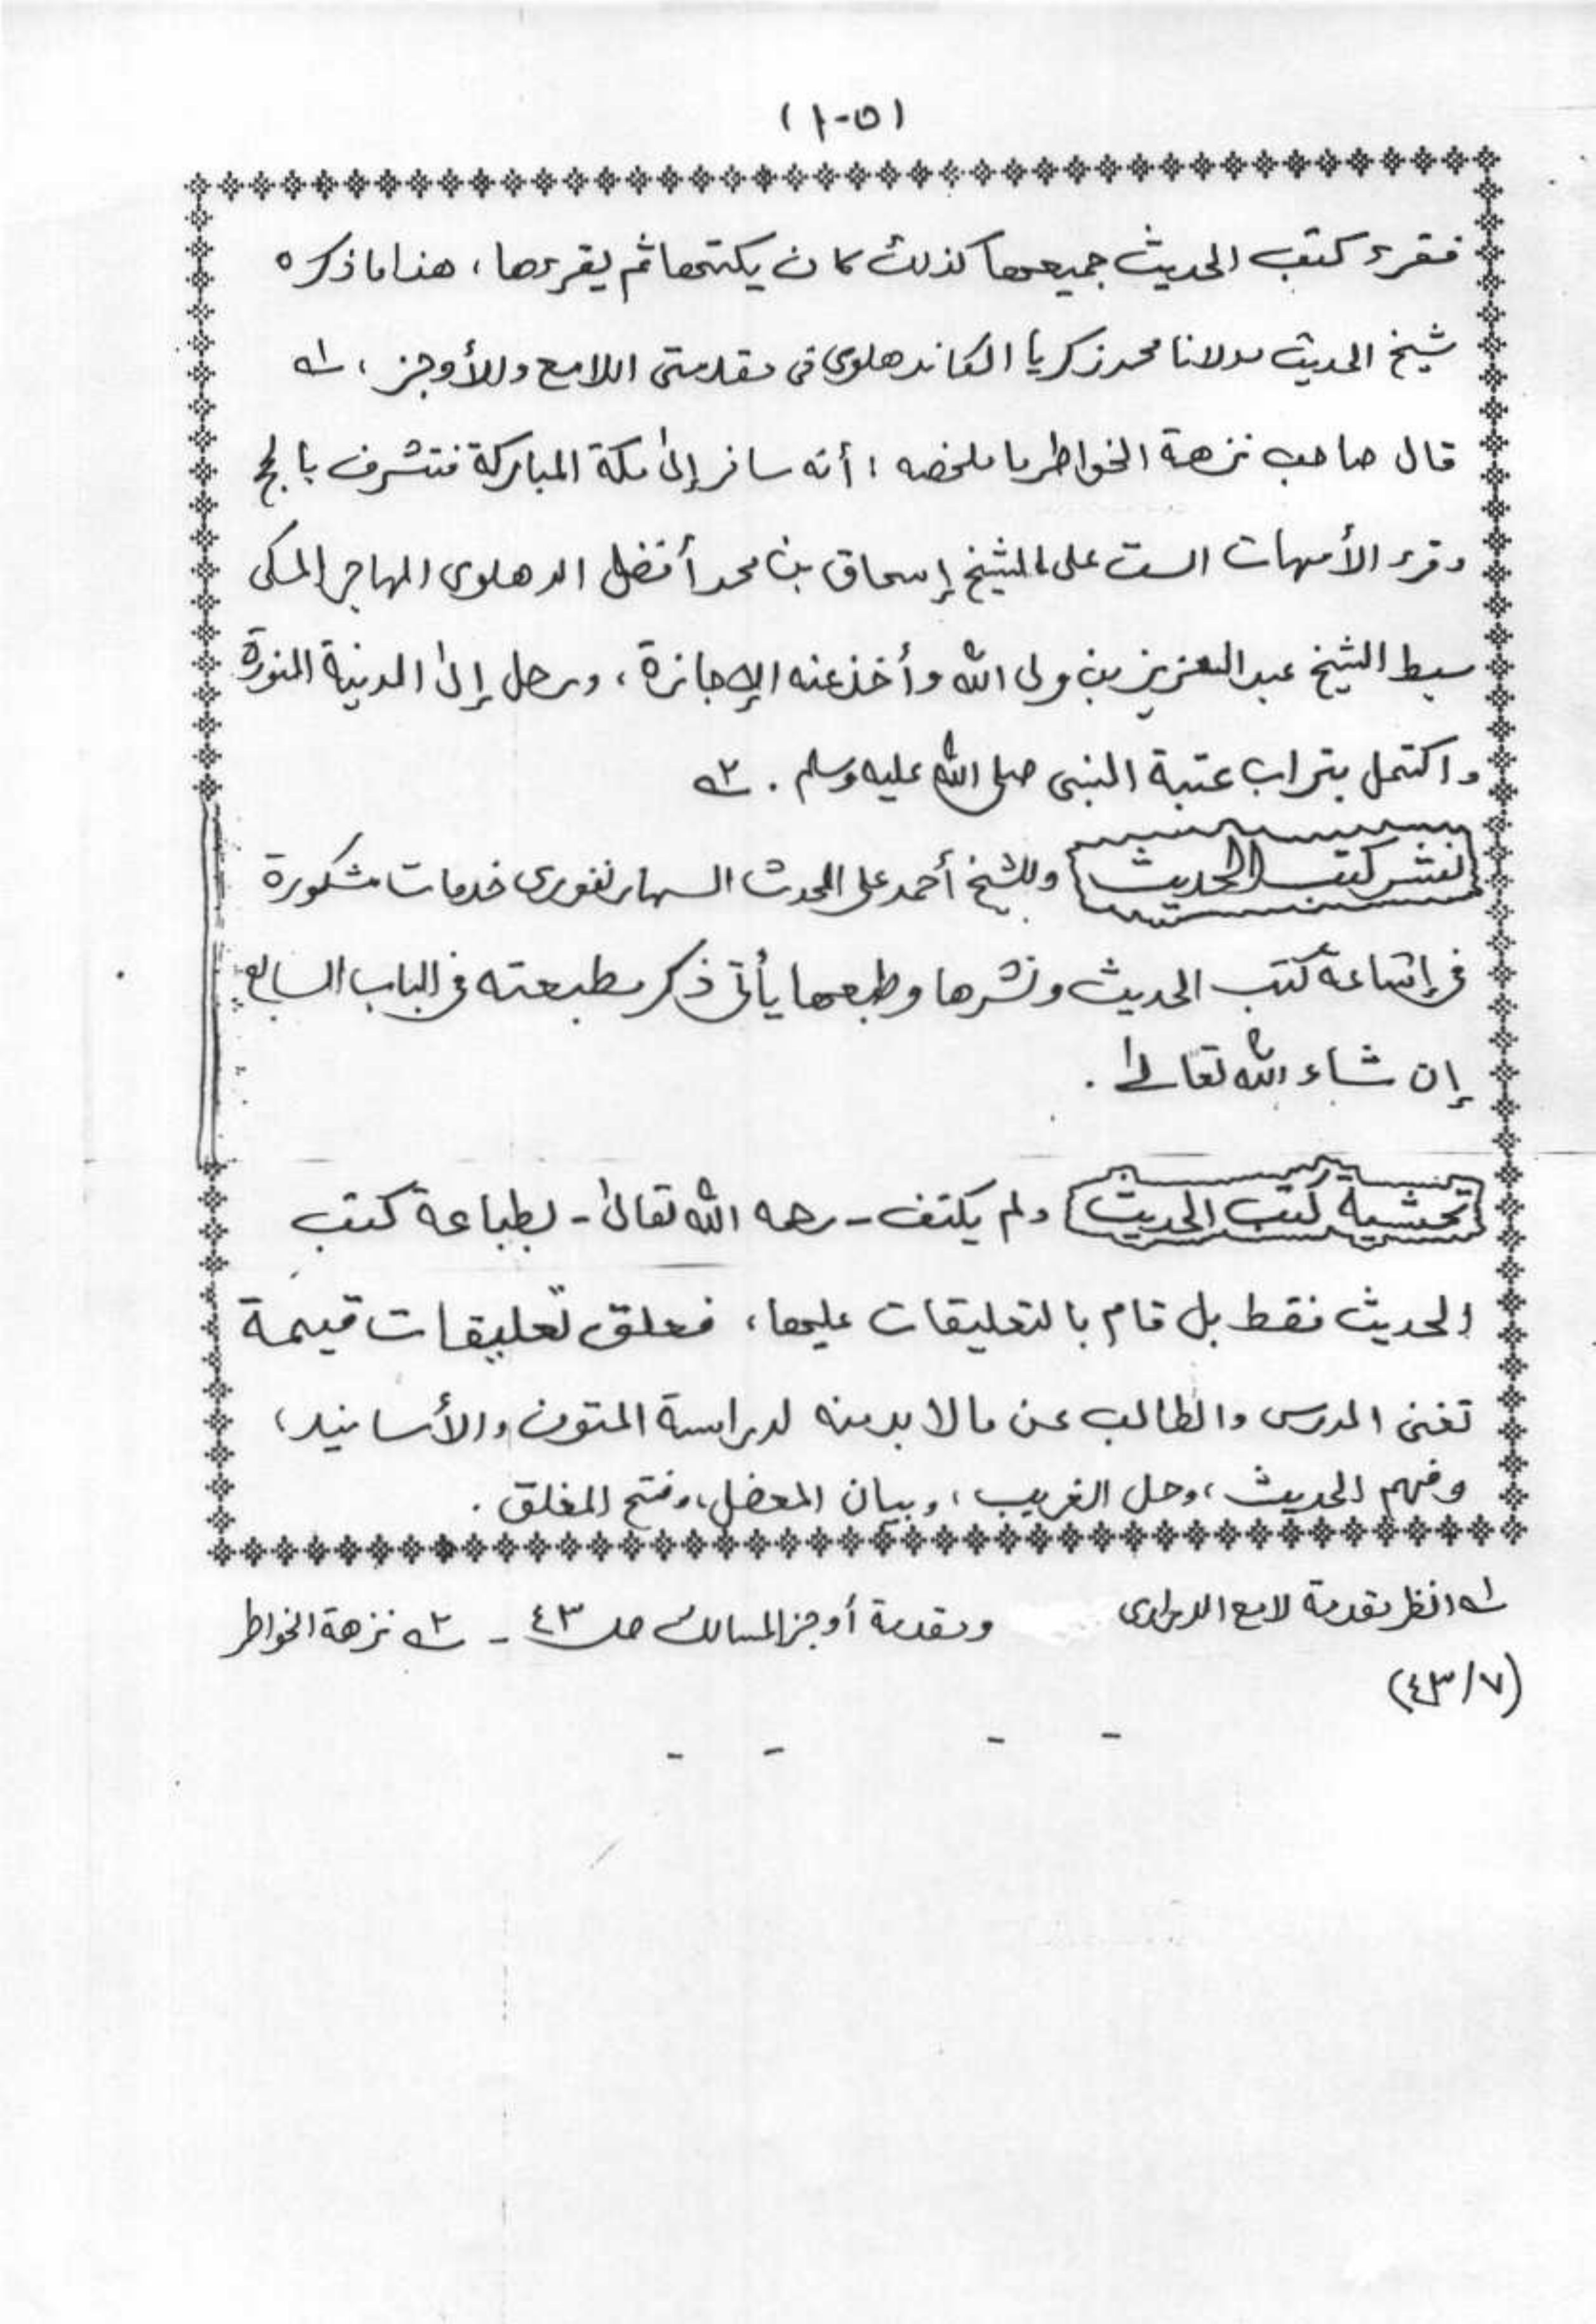 (١٠٥)
فقرء كتب الحديث جميعها كذلك كان يكتبها ثم يقرءها، هذا ما ذكره
شيخ الحديث مولانا محمد زكريا الكاندهلوى فى مقدمتى اللامع والأوجز، ١ـه
قال صاحب نزهة الخواطر ما ملخصه: أنه سافر إلى مكة المباركة فتشرف بالحج
وقرء الأمهات الست على الشيخ إسحاق بن محمد أفضل الدهلوى المهاجر المكى
سبط الشيخ عبد العزيز بن ولى الله وأخذ عنه الإجازة، ورحل إلى المدينة المنورة
واكتحل بتراب عتبة النبى صلى الله عليه وسلم. ٢ـه
نشر كتب الحديث وللشيخ أحمد على المحدث السهارنفورى خدمات مشكورة
فى إشاعة كتب الحديث ونشرها وطبعها يأتى ذكر مطبعته فى الباب السابع
إن شاء الله تعالى.
تحشية كتب الحديث ولم يكتف - رحمه الله تعالى - بطباعة كتب
الحديث فقط بل قام بالتعليقات عليها، فعلق تعليقات قيمة
تغنى المدرس والطالب عن ما لا بد منه لدراسة المتون والأسانيد،
وفهم الحديث، وحل الغريب، وبيان المعضل، وفتح المغلق.
١ـه انظر مقدمة لامع الدرارى ومقدمة أوجز المسالك صـ ٤٣ - ٢ـه نزهة الخواطر
(٤٣/٧)